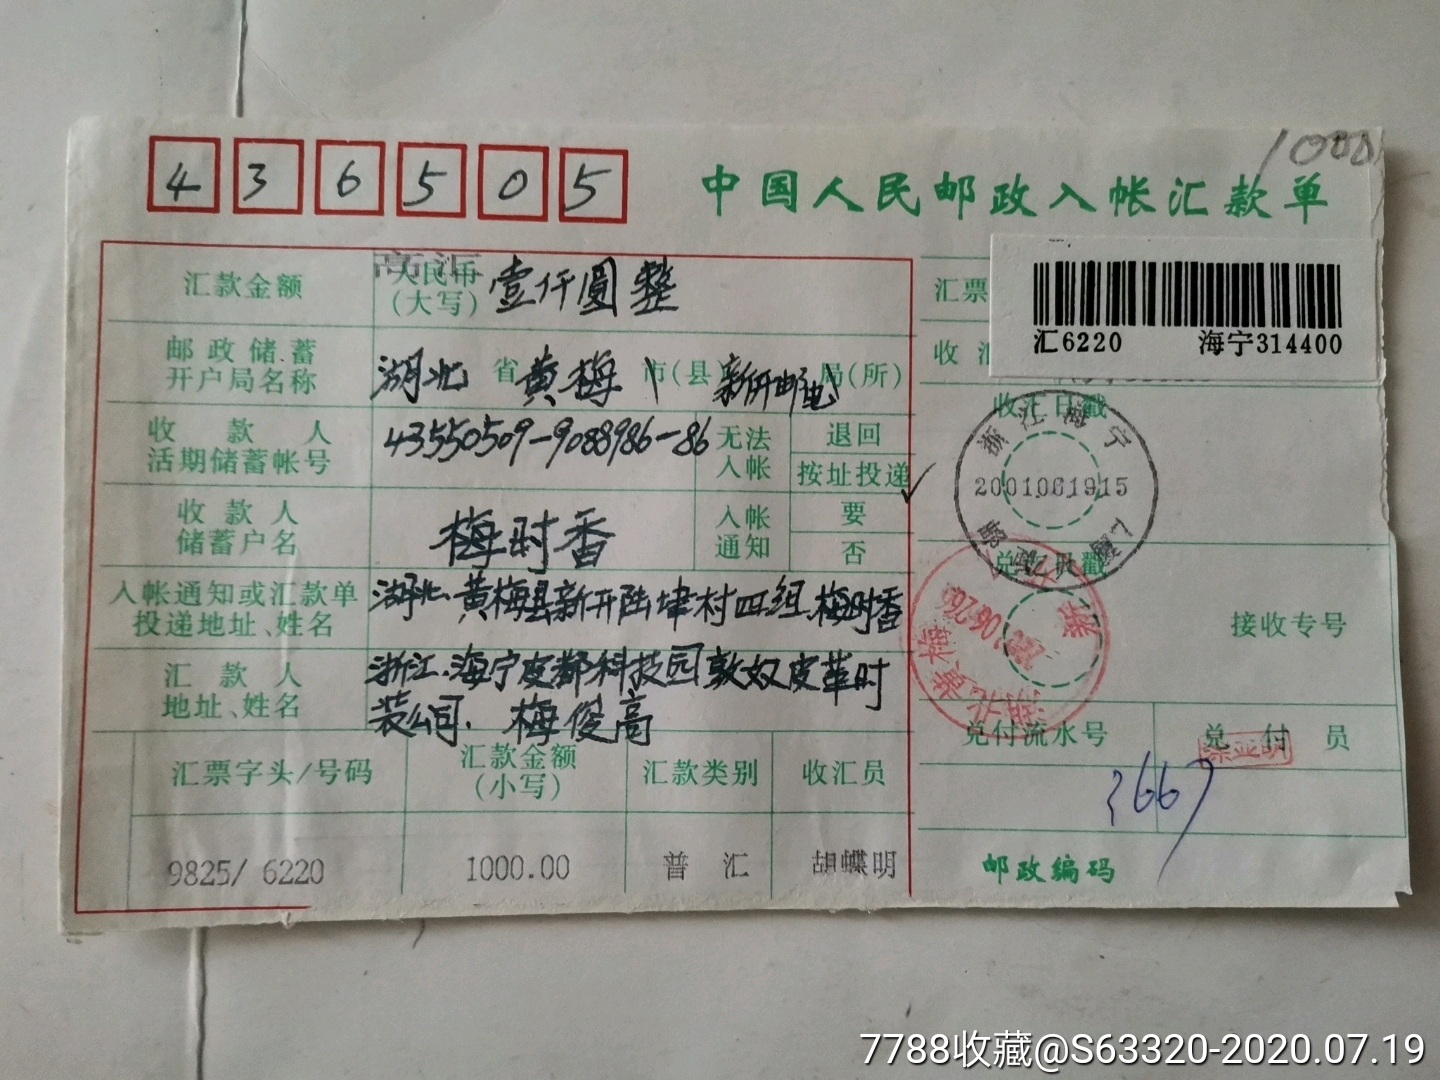 436505
中国人民邮政入帐汇款单
1000
汇款金额 人民币(大写) 壹仟圆整
汇票
汇6220 海宁314400
邮政储蓄开户局名称 湖北省黄梅市(县)新开邮电局(所)
收汇
收汇日戳
收款人活期储蓄帐号 43550509-9088986-86
无法入帐 退回
按址投递
浙江海宁
2001.06.19.15
收款人储蓄户名 梅时香
入帐通知 要
否
兑汇日戳
入帐通知或汇款单投递地址、姓名 湖北黄梅县新开陆埠村四组.梅时香
接收专号
汇款人地址、姓名 浙江.海宁皮都科技园敦奴皮革时
装公司. 梅俊高
兑付流水号 兑付员
汇票字头/号码 汇款金额(小写) 汇款类别 收汇员
3667
9825/ 6220 1000.00 普汇 胡蝶明
邮政编码
7788收藏@S63320-2020.07.19